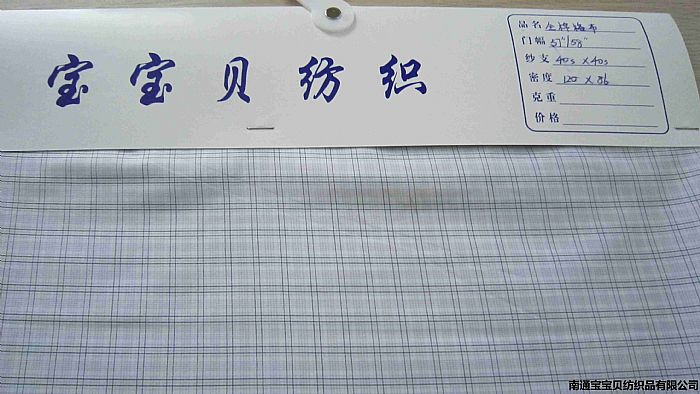 宝宝贝纺织
品名 全棉格布
门幅 57"/58"
纱支 40s X 40s
密度 120 X 86
克重
价格
南通宝宝贝纺织品有限公司